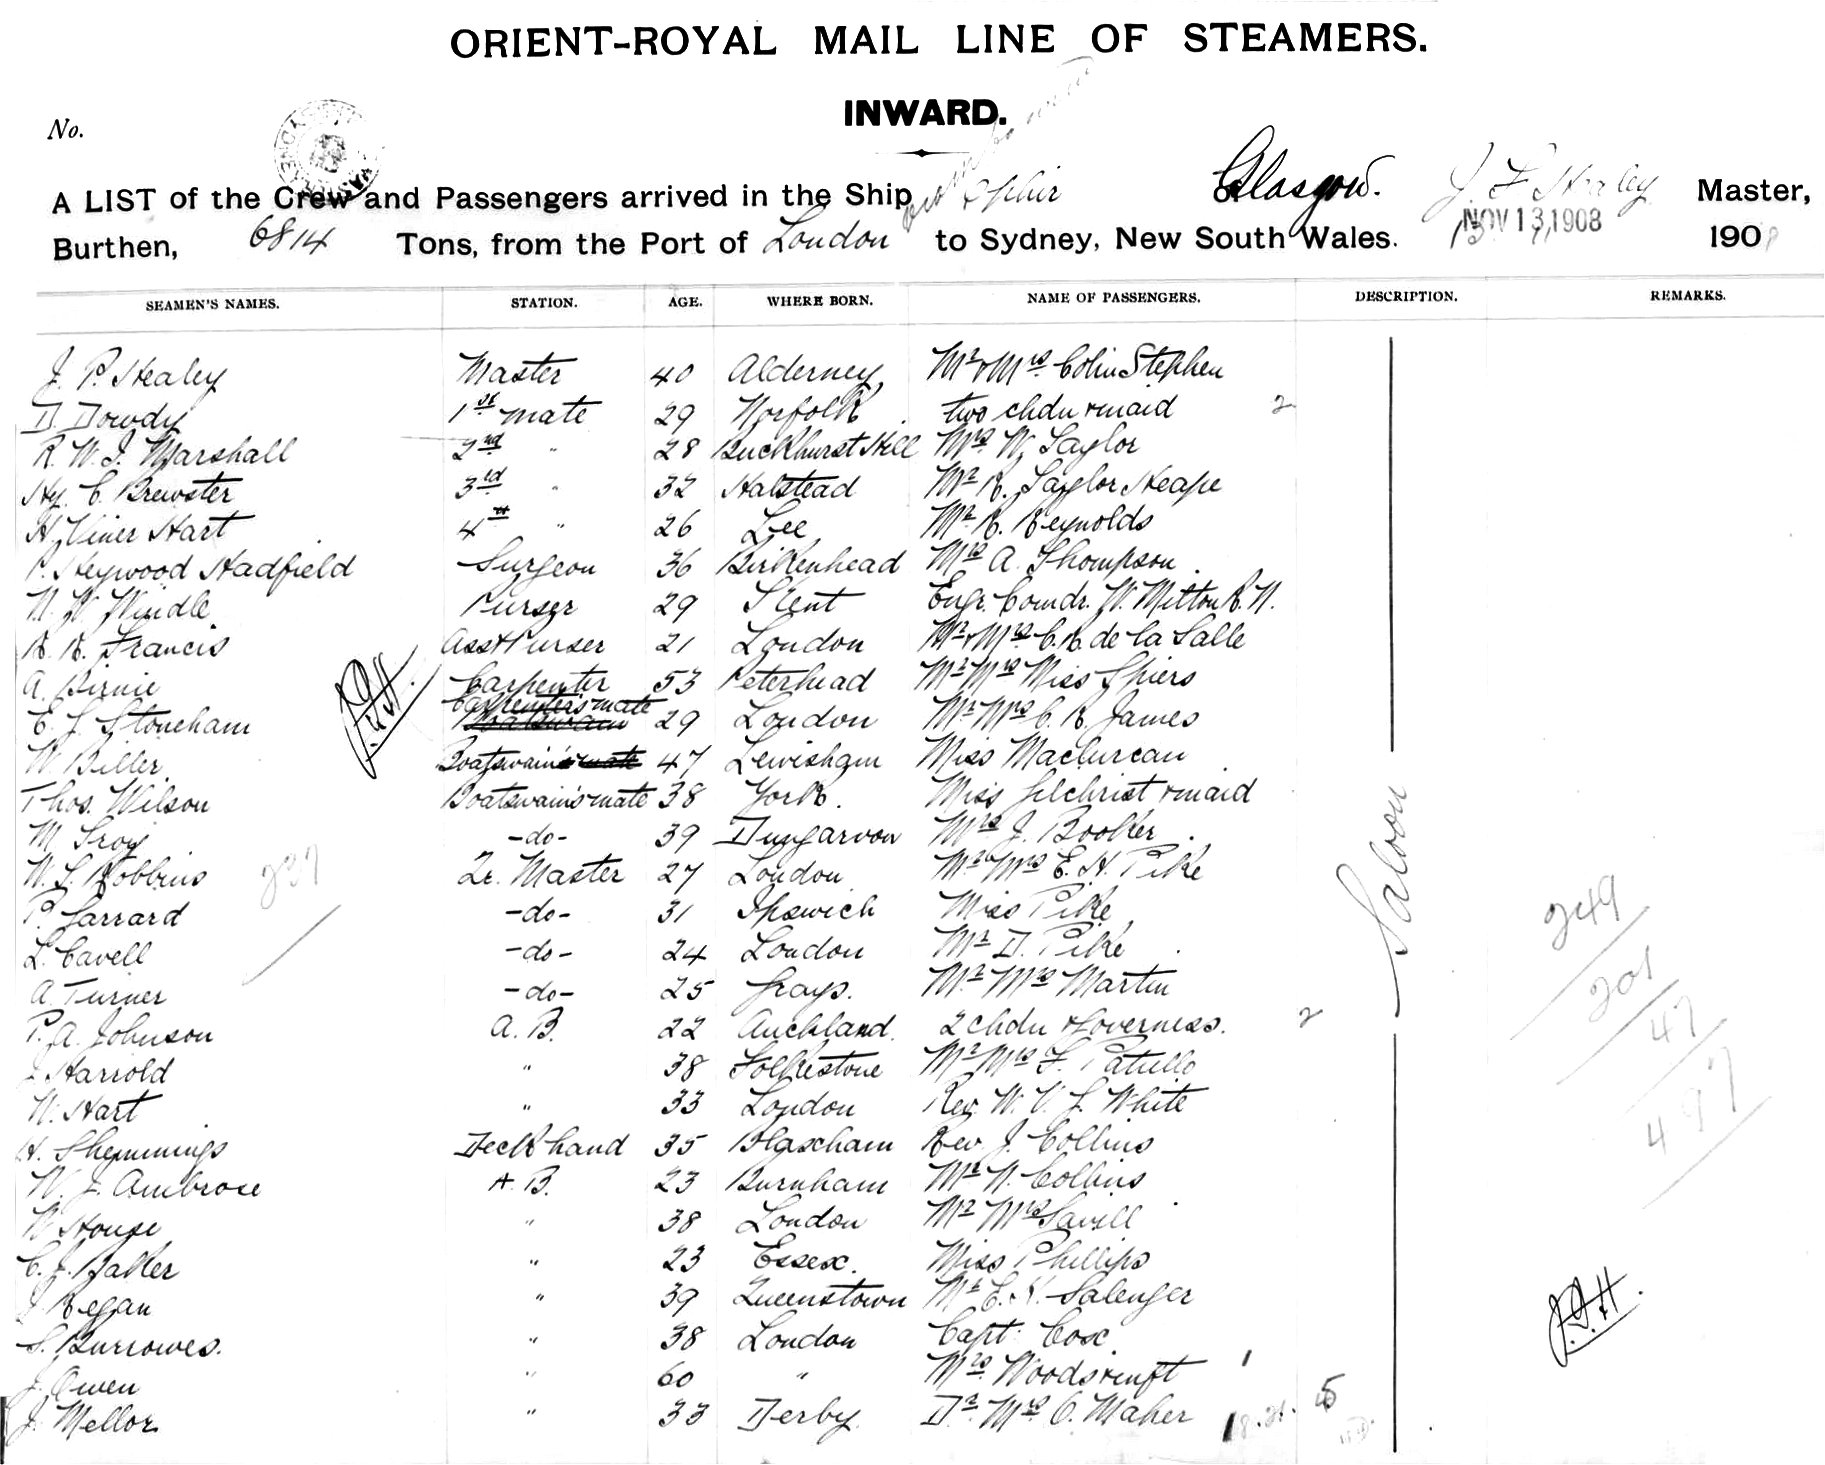 ORIENT-ROYAL MAIL LINE OF STEAMERS.
INWARD.
No.
A LIST of the Crew and Passengers arrived in the Ship Ophir Glasgow. J. F. Healey Master,
Burthen, 6814 Tons, from the Port of London to Sydney, New South Wales. NOV 13, 1908 1908
SEAMEN'S NAMES. STATION. AGE. WHERE BORN. NAME OF PASSENGERS. DESCRIPTION. REMARKS.
J. P. Healey Master 40 Alderney Mr & Mrs Colin Stephen
D Dowdy 1st mate 29 Norfolk two chdn & maid 2
R. W. J. Marshall 2nd " 28 Buckhurst Hill Mrs W. Taylor
Hy. C. Brewster 3rd " 32 Halstead Mr R. Taylor Heape
H. Viner Hart 4th " 26 Lee Mr R. Reynolds
P. Heywood Hadfield Surgeon 36 Birkenhead Mrs A. Thompson
N. W. Windle Purser 29 Kent Engr. Comdr. W. Mitton R.N.
R. R. Francis Asst Purser 21 London Mr & Mrs C. R. de la Salle
A. Birnie Carpenter 53 Peterhead Mr Mrs Miss Spiers
E. J. Stoneham Carpenter's mate Boatswain 29 London Mr Mrs C. R. James
W. Biller Boatswain's mate 47 Lewisham Miss Maclurcan
Thos. Wilson Boatswain's mate 38 York. Miss Gilchrist & maid
M Troy -do- 39 Dungarvon Mrs J. Booker
W. S. Robbins Qr. Master 27 London Mr Mrs E. H. Pike
P. Garrard -do- 31 Ipswich Miss Pike
L. Cavell -do- 24 London Mr D. Pike
A. Turner -do- 25 Grays. Mr Mrs Martin
P. A. Johnson A. B. 22 Auckland. 2 chdn & Governess. 2
J. Harrold " 38 Folkestone Mr Mrs F. Patullo
W. Hart " 33 London Rev. W. V. J. White
H. Shemmings Deck hand 35 Blaxcham Rev. J. Collins
W. J. Ambrose A. B. 23 Burnham Mr N. Collins
W House " 38 London Mr Mrs Savill
C. J. Baker " 23 Essex. Miss Phillips
J Regan " 39 Queenstown Mr E. V. Salenger
S. Burrowes. " 38 London Capt. Cox
J. Owen " 60 " Mrs Woodscruft 1
J. Mellor " 33 Derby Dr. Mrs O. Maher 5
Saloon
237
249
201
47
497
J.F.H.
J.F.H.